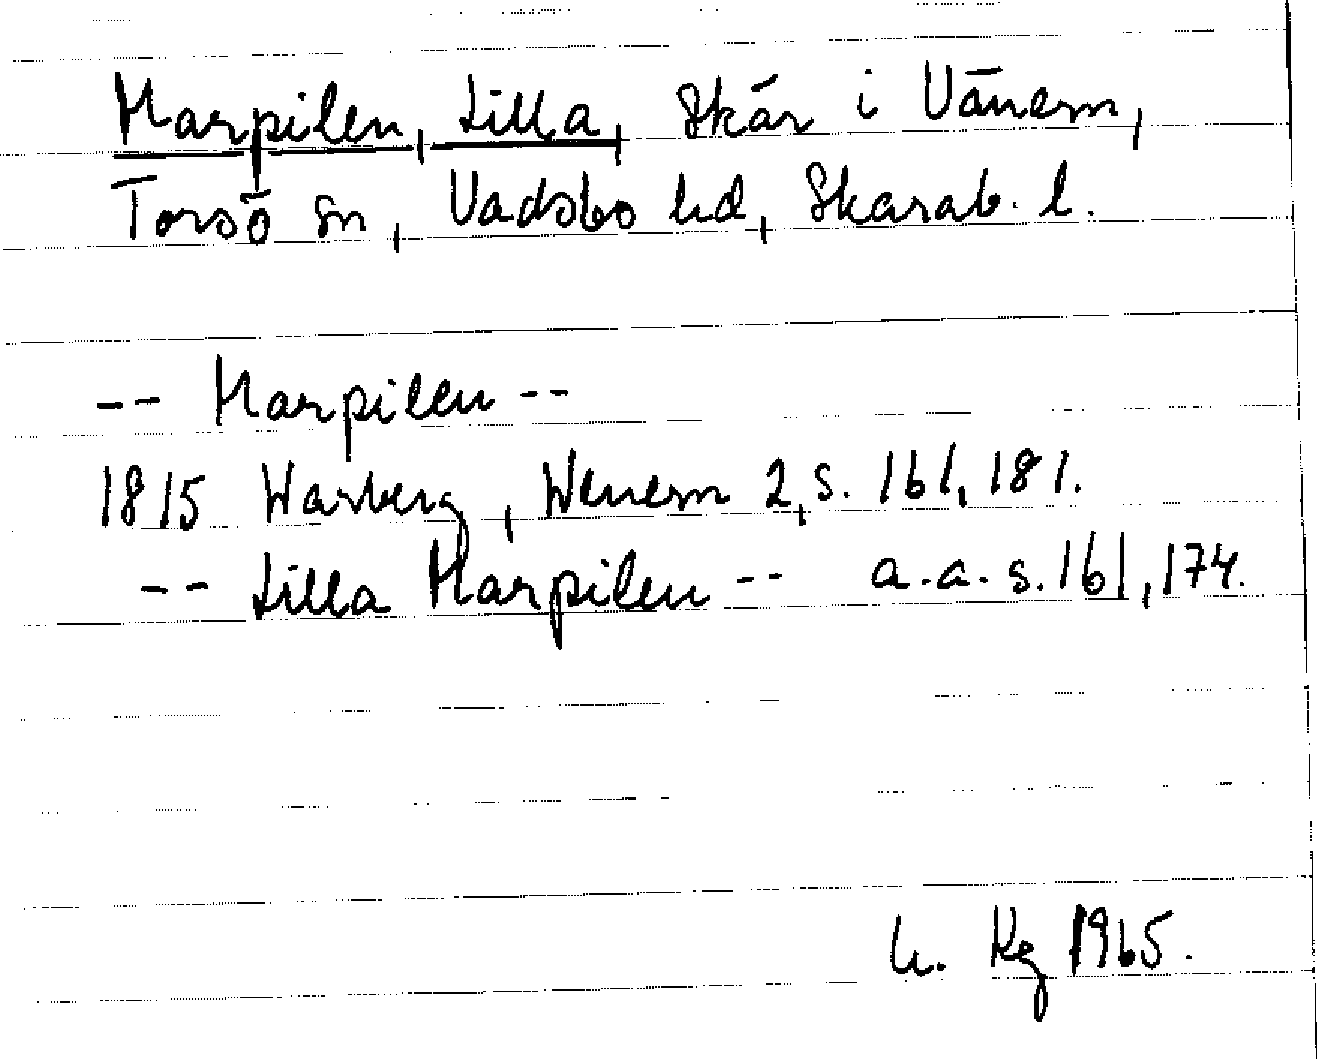 Harpilen, Lilla, Skär i Vänern,
Torsö sn, Vadsbo hd, Skarab. l.
-- Harpilen --
1815 Warberg, Wenern 2, s. 161, 181.
-- Lilla Harpilen -- a.a. s. 161, 174.
h. Kg 1965.